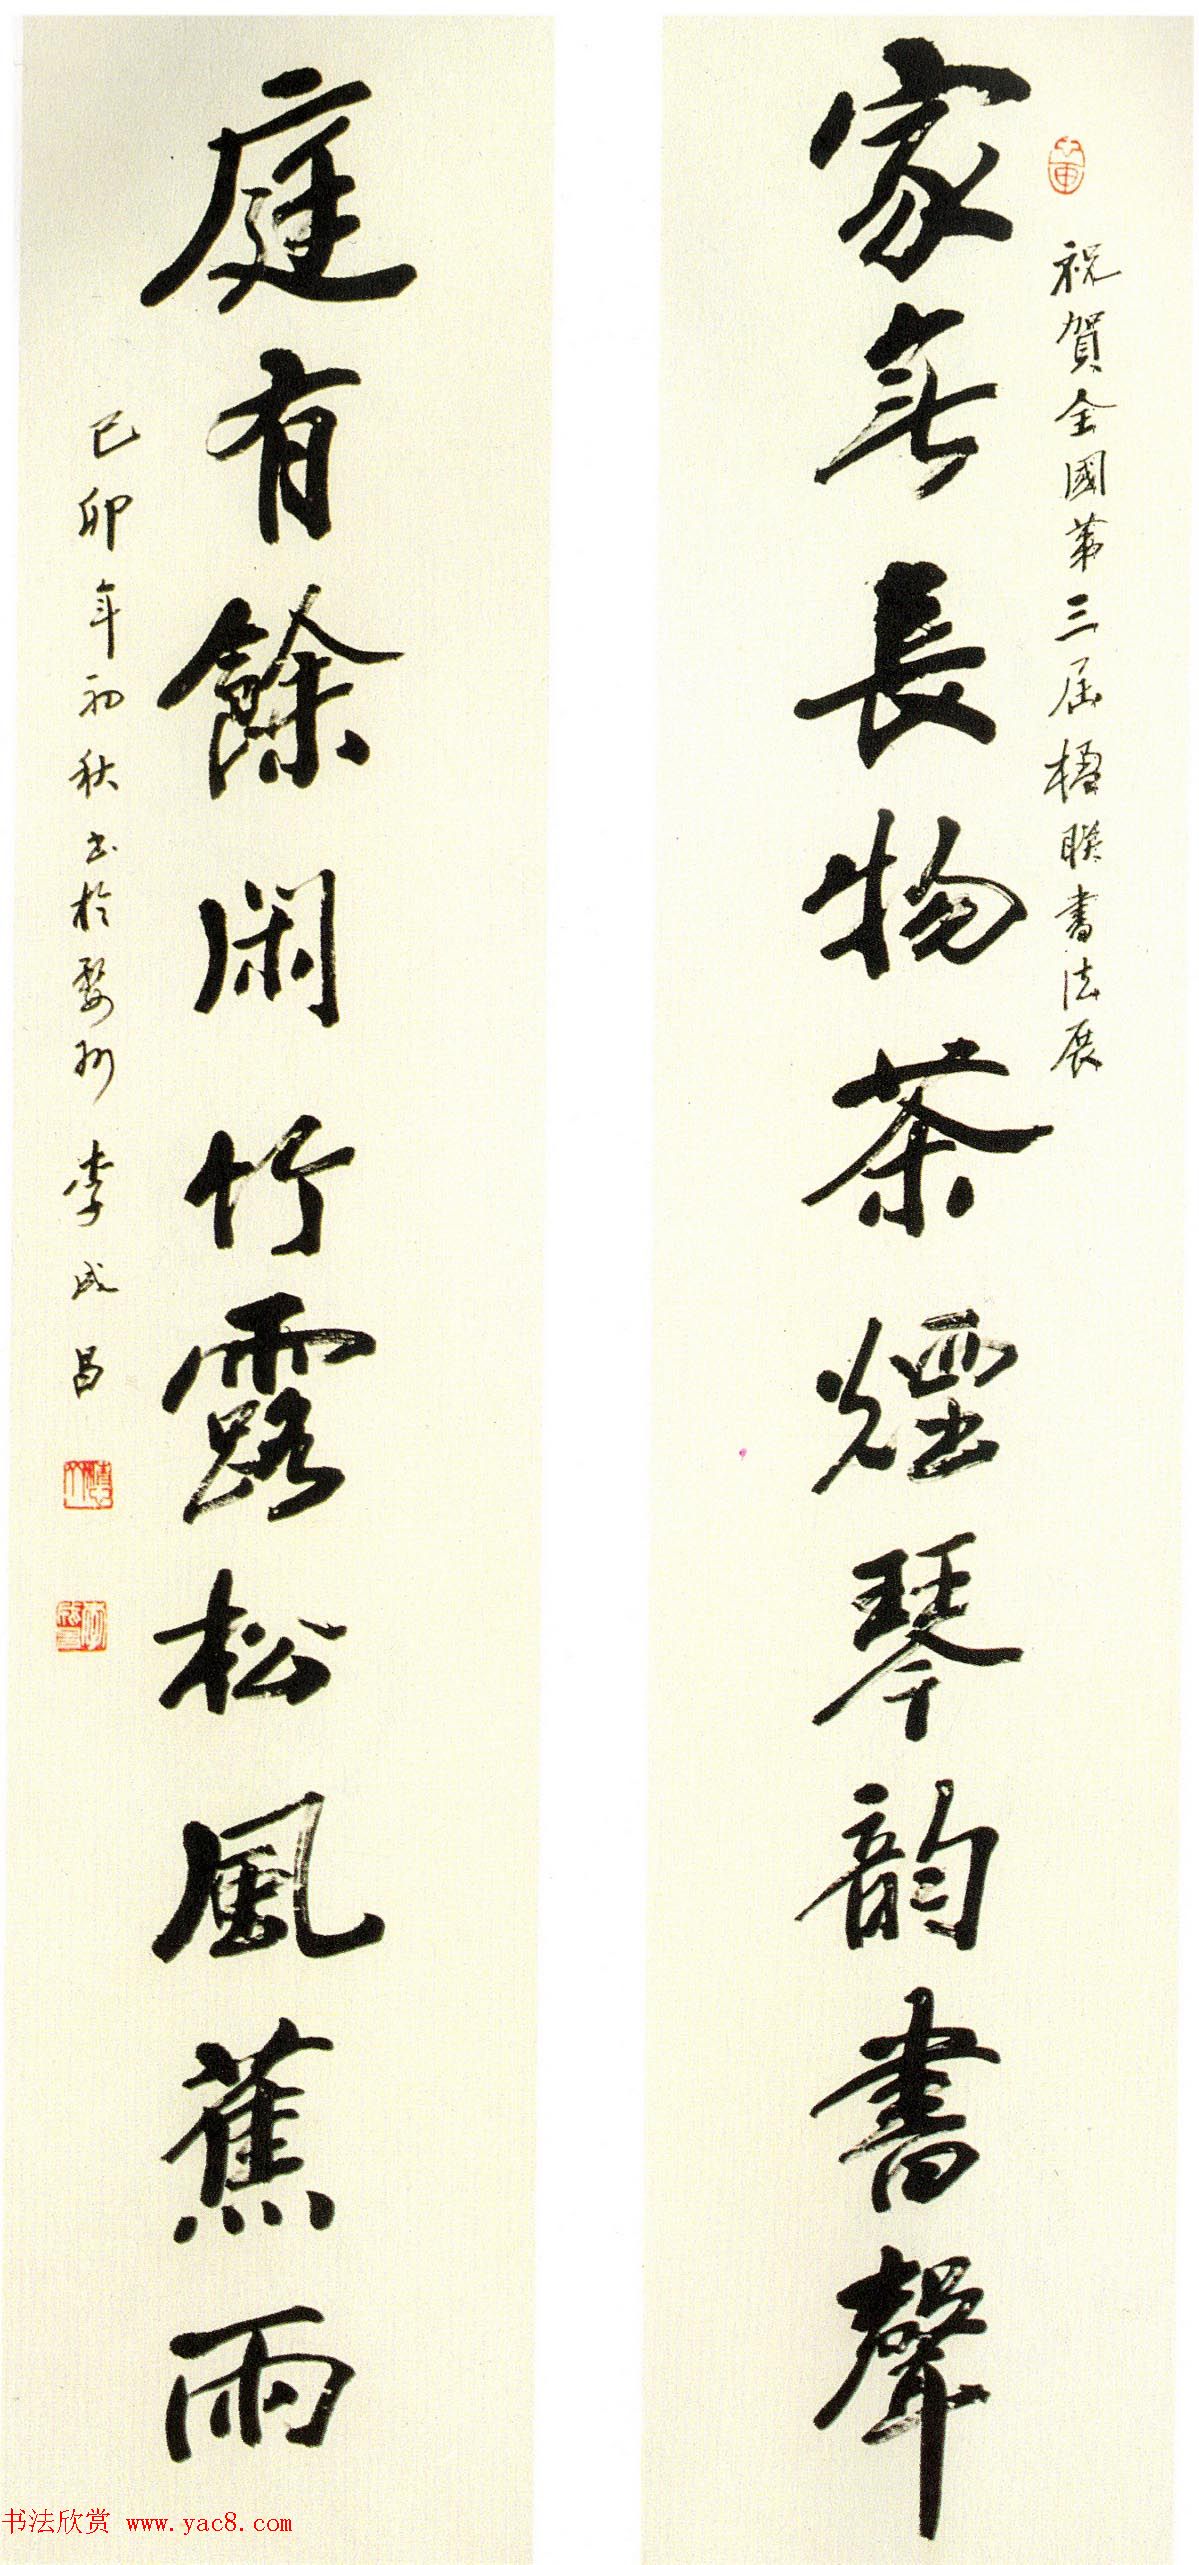 祝賀全國第三屆楹聯書法展
家無長物茶煙琴韵書聲
庭有餘閑竹露松風蕉雨
己卯年初秋書於婺州李成昌
书法欣赏 www.yac8.com